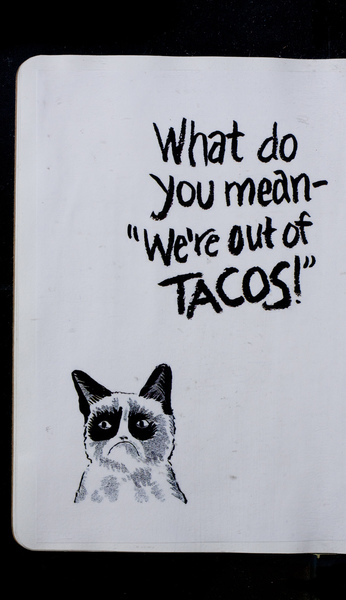 What do
you mean-
"We're out of
TACOS!"